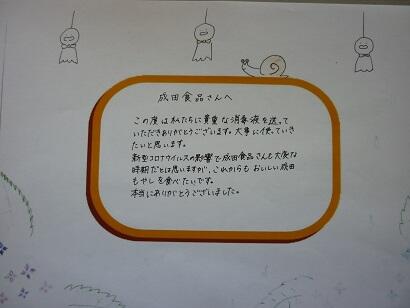 成田食品さんへ
この度は私たちに貴重な消毒液を送って
いただきありがとうございます。大事に使っていき
たいと思います。
新型コロナウイルスの影響で成田食品さんも大変な
時期だとは思いますが、これからもおいしい成田
もやしを食べたいです。
本当にありがとうございました。